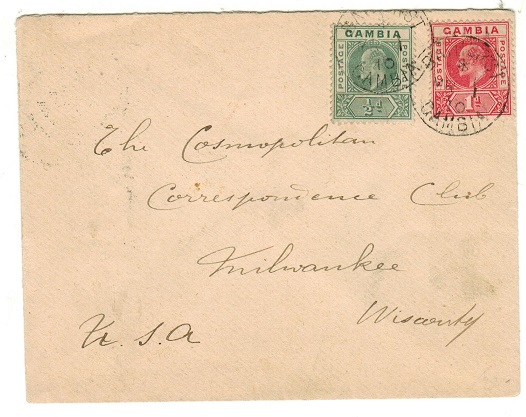 GAMBIA
POSTAGE POSTAGE
½d
GAMBIA
POSTAGE POSTAGE
1d
GAMBIA
GAMBIA
The Cosmopolitan
Correspondence Club
Milwaukee
U.S.A